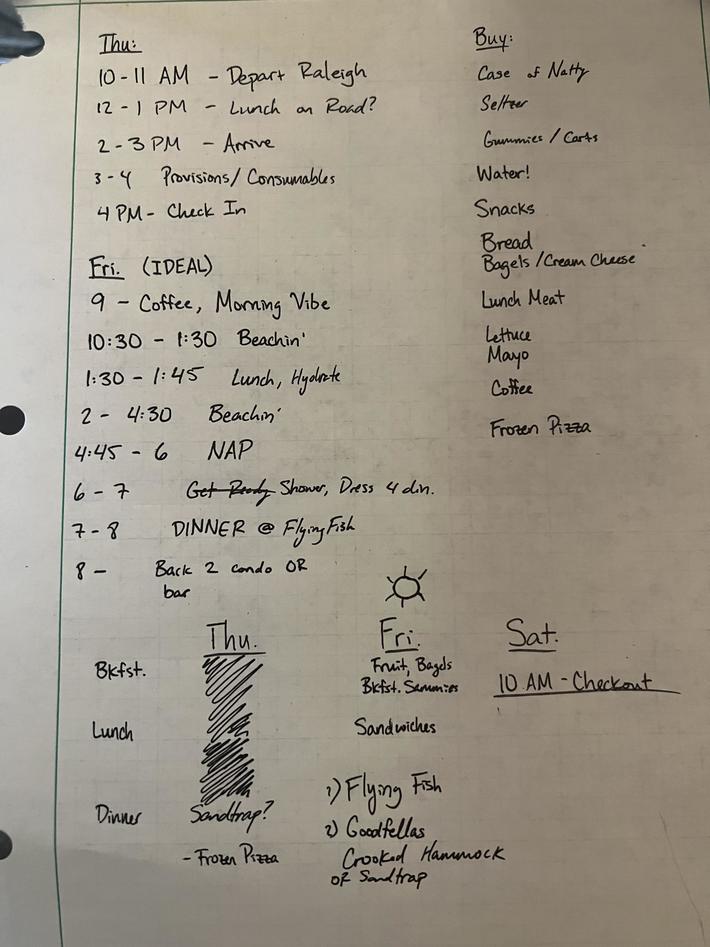 Thu:
10-11 AM - Depart Raleigh
12-1 PM - Lunch on Road?
2-3 PM - Arrive
3-4 Provisions/Consumables
4 PM - Check In
Fri. (IDEAL)
9 - Coffee, Morning Vibe
10:30 - 1:30 Beachin'
1:30 - 1:45 Lunch, Hydrate
2 - 4:30 Beachin'
4:45 - 6 NAP
6 - 7 Get Ready Shower, Dress 4 din.
7 - 8 DINNER @ Flying Fish
8 - Back 2 condo OR
bar
Buy:
Case of Natty
Seltzer
Gummies / Carts
Water!
Snacks
Bread
Bagels / Cream Cheese
Lunch Meat
Lettuce
Mayo
Coffee
Frozen Pizza
Thu. Fri. Sat.
Bkfst. Fruit, Bagels
Bkfst. Sammies
10 AM - Checkout
Lunch Sandwiches
Dinner Sandtrap?
- Frozen Pizza
1) Flying Fish
2) Goodfellas
Crooked Hammock
or Sandtrap